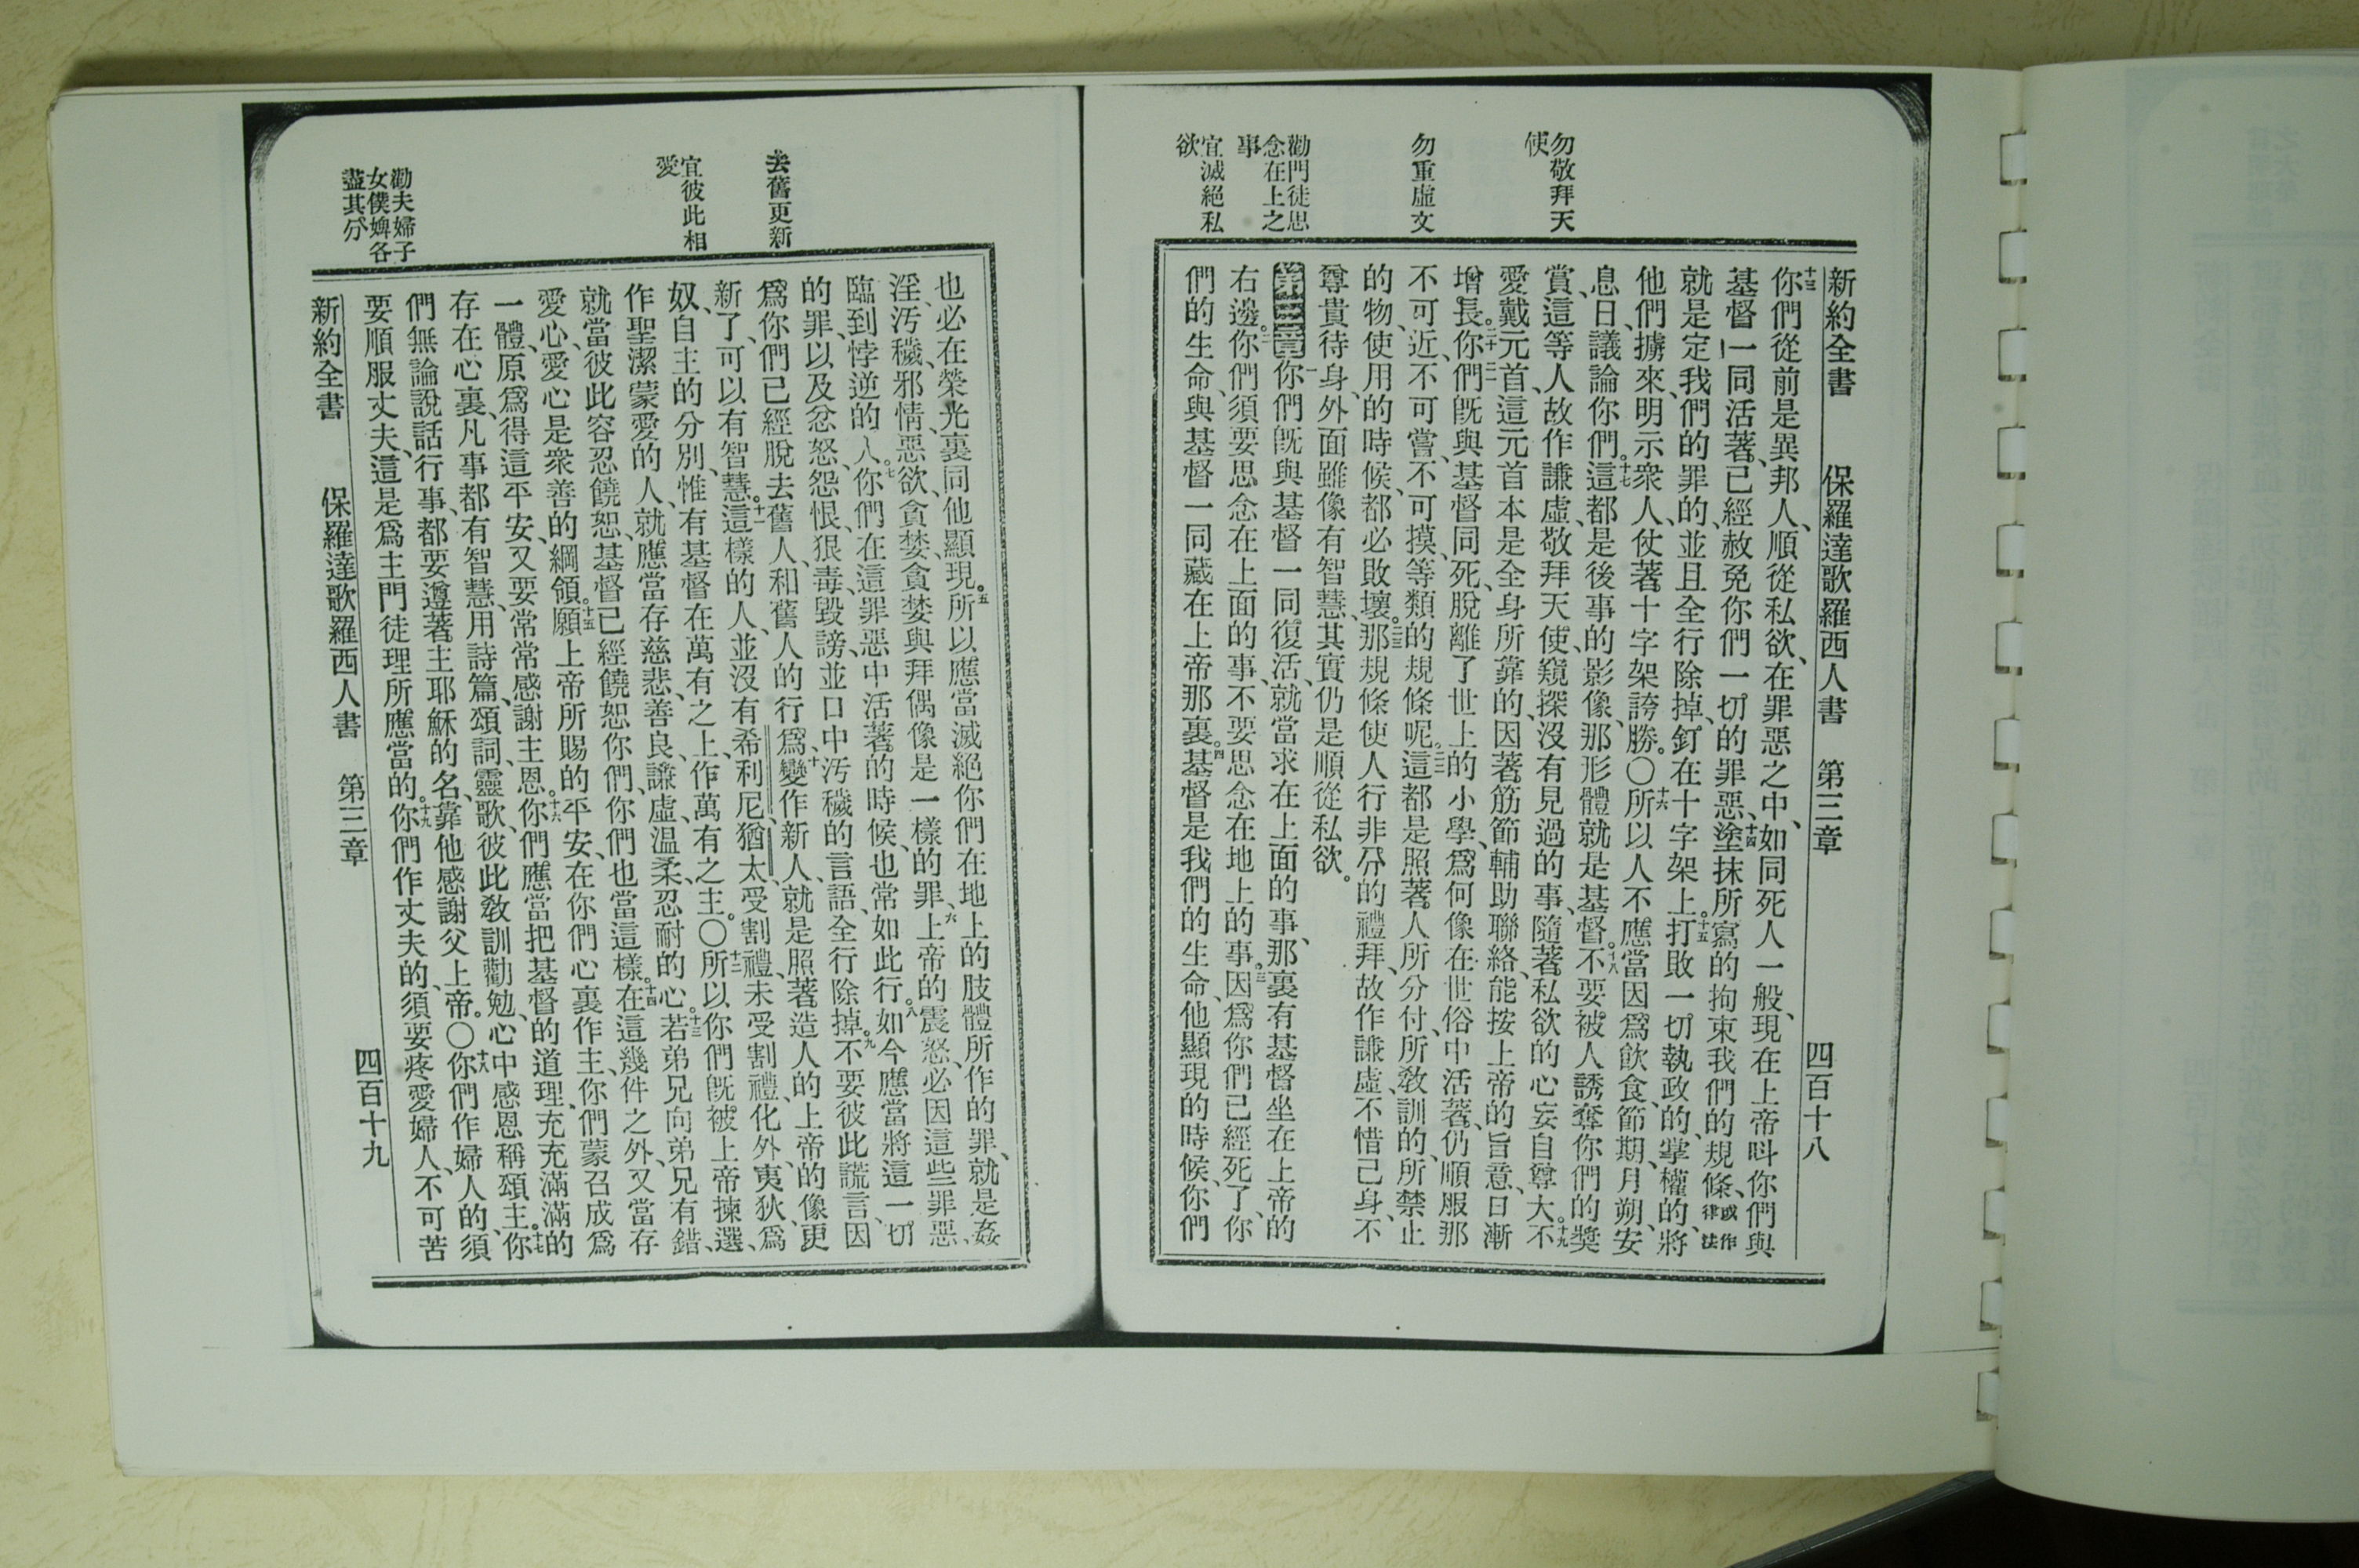 勿敬拜天
使
勿重虛文
勸門徒思
念在上之
事
宜滅絕私
欲
新約全書 保羅達歌羅西人書 第三章 四百十八
十三你們從前是異邦人、順從私欲、在罪惡之中、如同死人一般、現在上帝叫你們與
基督一同活著、已經赦免你們一切的罪惡、十四塗抹所寫的拘束我們的規條、或作律法
就是定我們的罪的、並且全行除掉、釘在十字架上。十五打敗一切執政的、掌權的、將
他們擄來、明示衆人、仗著十字架誇勝。〇十六所以人不應當因爲飲食、節期、月朔、安
息日、議論你們。十七這都是後事的影像、那形體就是基督。十八不要被人誘奪你們的獎
賞、這等人故作謙虛、敬拜天使、窺探沒有見過的事、隨著私欲的心妄自尊大。十九不
愛戴元首、這元首本是全身所靠的、因著筋節輔助聯絡、能按上帝的旨意、日漸
增長。二十你們旣與基督同死、脫離了世上的小學、爲何像在世俗中活著、仍順服那
不可近、不可嘗、不可摸、等類的規條呢。二二這都是照著人所分付、所敎訓的、所禁止
的物、使用的時候、都必敗壞。二三那規條使人行非分的禮拜、故作謙虛、不惜己身、不
尊貴待身、外面雖像有智慧、其實仍是順從私欲。
第三章一你們旣與基督一同復活、就當求在上面的事、那裏有基督坐在上帝的
右邊。二你們須要思念在上面的事、不要思念在地上的事。三因爲你們已經死了、你
們的生命、與基督一同藏在上帝那裏。四基督是我們的生命、他顯現的時候、你們
去舊更新
宜彼此相
愛
勸夫婦子
女僕婢各
盡其分
也必在榮光裏同他顯現。五所以應當滅絕你們在地上的肢體所作的罪、就是姦
淫、汚穢、邪情、惡欲、貪婪、貪婪與拜偶像是一樣的罪、六上帝的震怒、必因這些罪惡、
臨到悖逆的人。七你們在這罪惡中活著的時候、也常如此行。八如今應當將這一切
的罪、以及忿怒、怨恨、狠毒、毀謗、並口中汚穢的言語、全行除掉。九不要彼此謊言、因
爲你們已經脫去舊人、和舊人的行爲、十變作新人、就是照著造人的上帝的像、更
新了、可以有智慧。十一這樣的人、並沒有希利尼猶太、受割禮、未受割禮、化外、夷狄、爲
奴、自主的分別、惟有基督在萬有之上、作萬有之主。〇十二所以你們旣被上帝揀選、
作聖潔蒙愛的人、就應當存慈悲、善良、謙虛、溫柔、忍耐的心。十三若弟兄向弟兄有錯、
就當彼此容忍饒恕、基督已經饒恕你們、你們也當這樣。十四在這幾件之外、又當存
愛心、愛心是衆善的綱領。十五願上帝所賜的平安、在你們心裏作主、你們蒙召成爲
一體、原爲得這平安、又要常常感謝主恩。十六你們應當把基督的道理、充充滿滿的
存在心裏、凡事都有智慧、用詩篇、頌詞、靈歌、彼此敎訓勸勉、心中感恩稱頌主。十七你
們無論說話行事、都要遵著主耶穌的名、靠他感謝父上帝。〇十八你們作婦人的、須
要順服丈夫、這是爲主門徒理所應當的。十九你們作丈夫的、須要疼愛婦人、不可苦
新約全書 保羅達歌羅西人書 第三章 四百十九